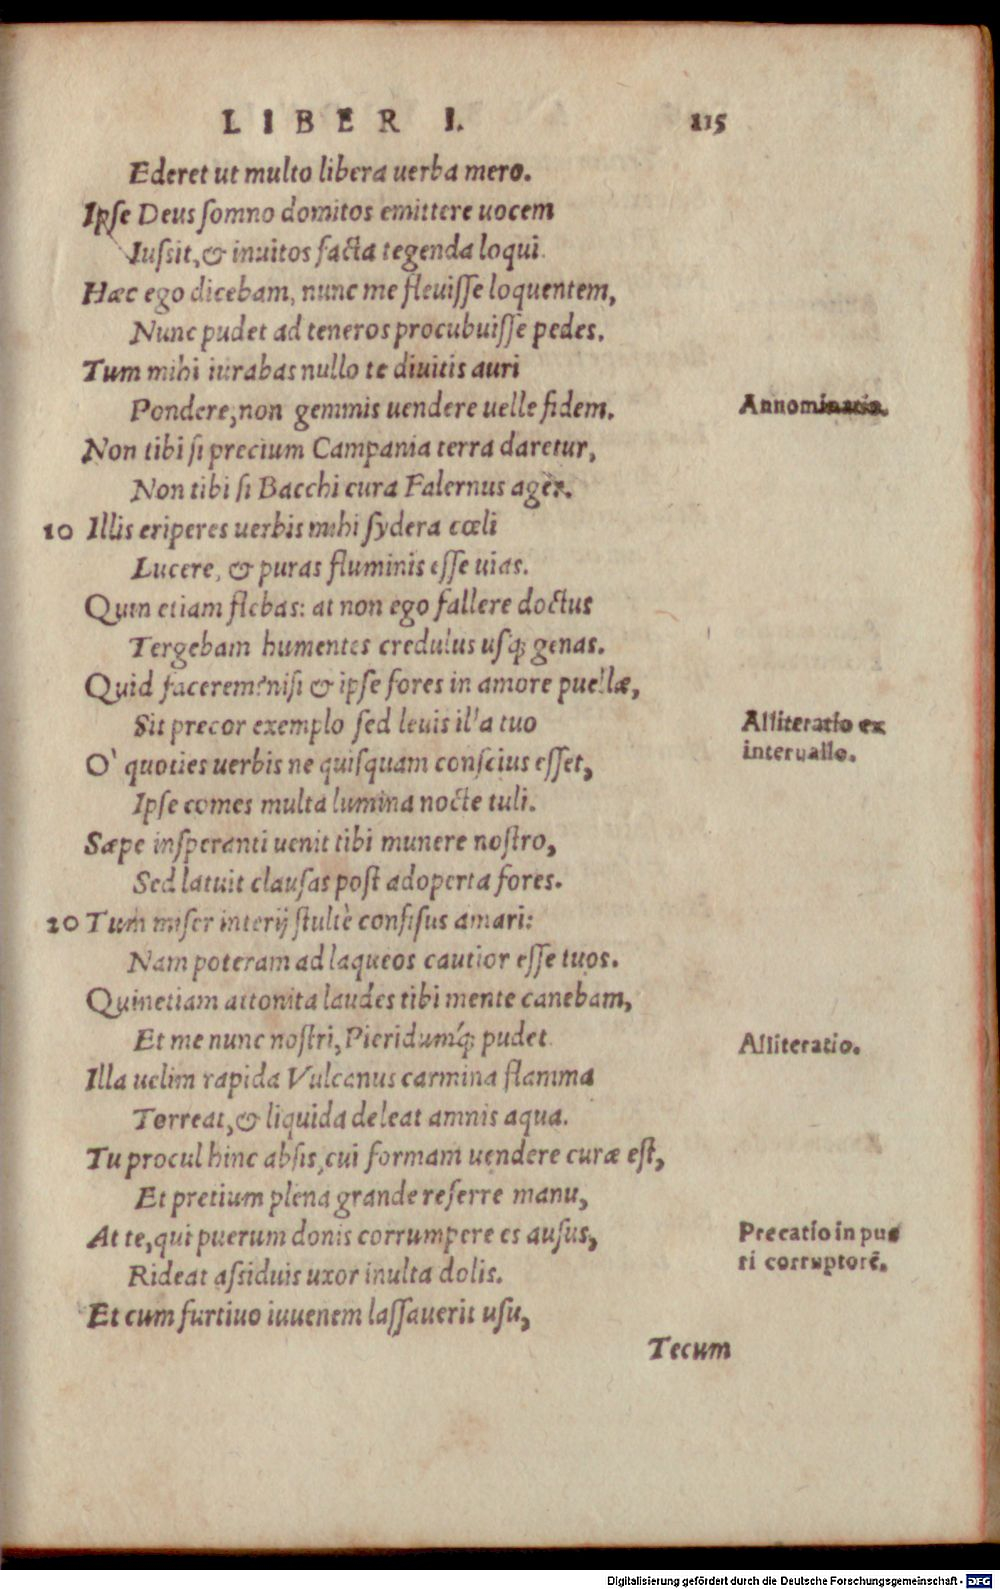 LIBER I. 115
Ederet ut multo libera uerba mero.
Ipſe Deus ſomno domitos emittere uocem
Iuſsit, & inuitos facta tegenda loqui.
Hæc ego dicebam, nunc me fleuiſſe loquentem,
Nunc pudet ad teneros procubuiſſe pedes.
Tum mihi iurabas nullo te diuitis auri
Pondere, non gemmis uendere uelle fidem. Annominatio.
Non tibi ſi precium Campania terra daretur,
Non tibi ſi Bacchi cura Falernus ager.
10 Illis eriperes uerbis mihi ſydera cœli
Lucere, & puras fluminis eſſe uias.
Quin etiam flebas: at non ego fallere doctus
Tergebam humentes credulus uſq; genas.
Quid facerem niſi & ipſe fores in amore puellæ,
Sit precor exemplo ſed leuis illa tuo Alliteratio ex
interuallo.
O' quoties uerbis ne quiſquam conſcius eſſet,
Ipſe comes multa lumina nocte tuli.
Sæpe inſperanti uenit tibi munere noſtro,
Sed latuit clauſas poſt adoperta fores.
20 Tum miſer interij ſtultè confiſus amari:
Nam poteram ad laqueos cautior eſſe tuos.
Quinetiam attonita laudes tibi mente canebam,
Et me nunc noſtri, Pieridumq́; pudet. Alliteratio.
Illa uelim rapida Vulcanus carmina flamma
Torreat, & liquida deleat amnis aqua.
Tu procul hinc abſis, cui formam uendere curæ eſt,
Et pretium plena grande referre manu,
At te, qui puerum donis corrumpere es auſus, Precatio in pue
ri corruptorē.
Rideat aſsiduis uxor inulta dolis.
Et cum furtiuo iuuenem laſſauerit uſu,
Tecum
Digitalisierung gefördert durch die Deutsche Forschungsgemeinschaft - DFG